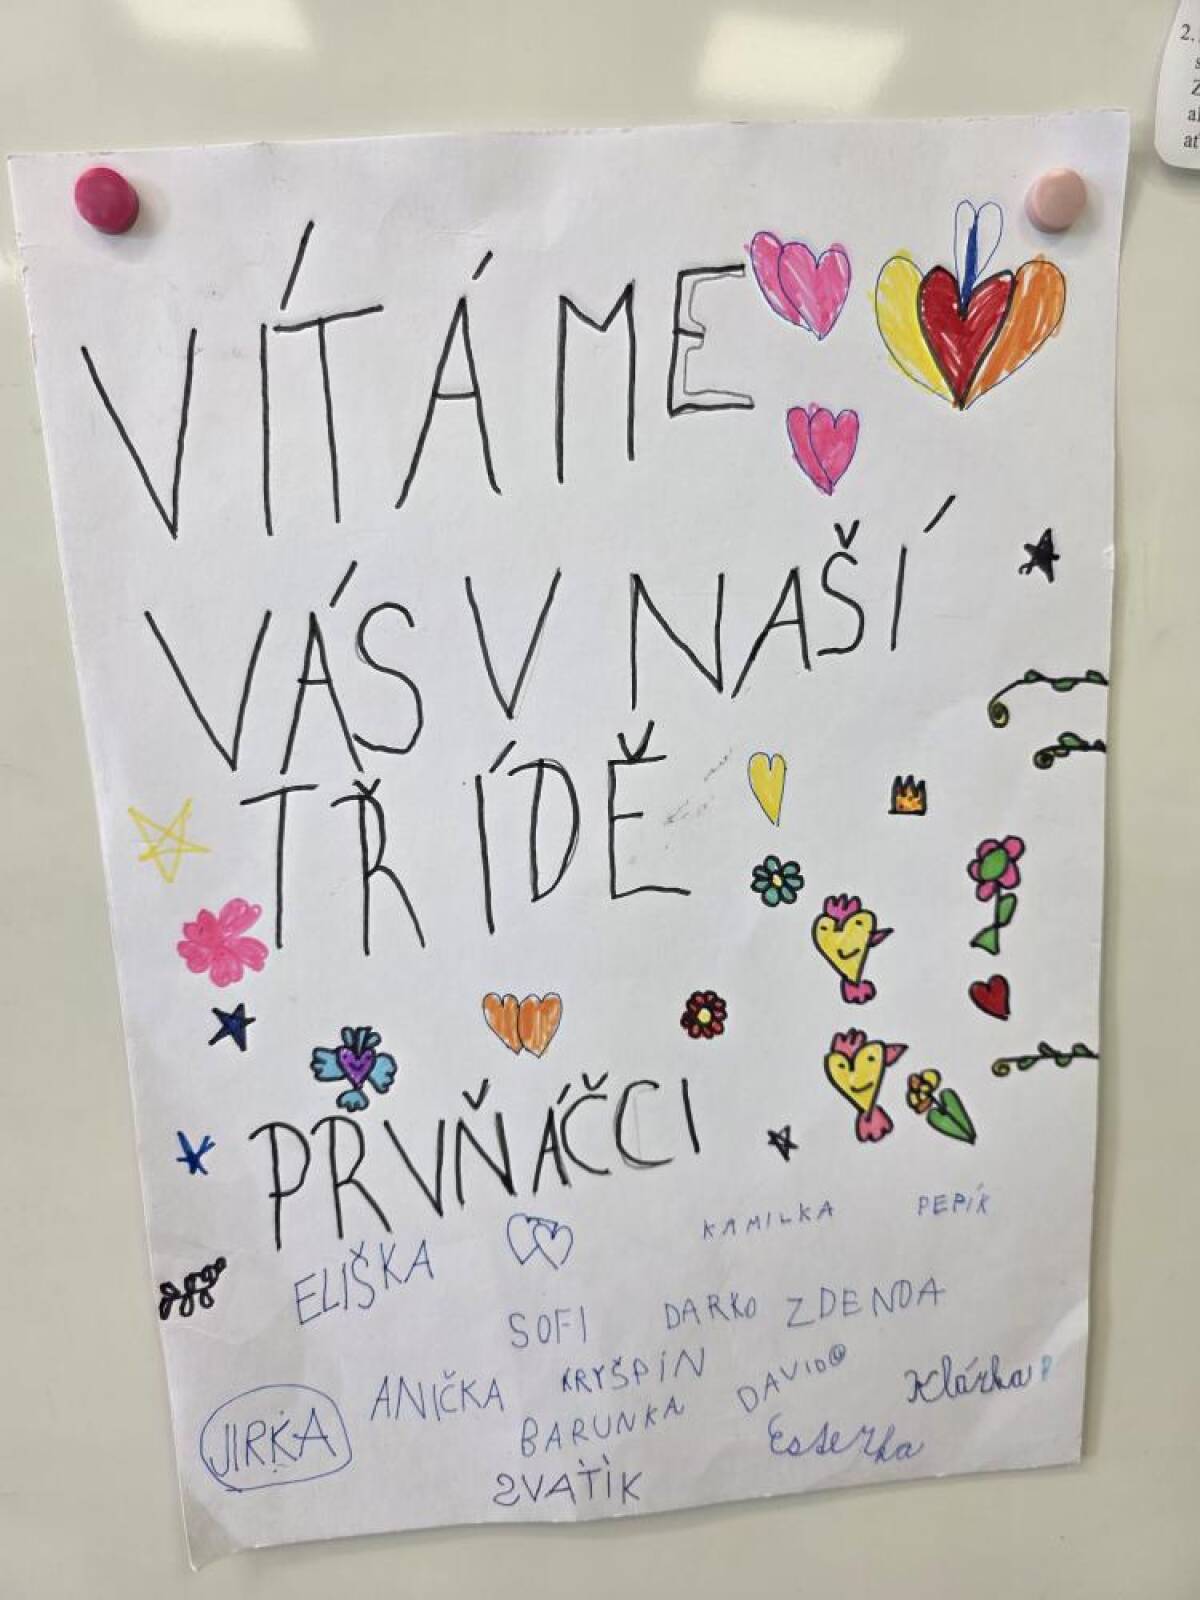 VÍTÁME
VÁS V NAŠÍ
TŘÍDĚ
PRVŇÁČCI
KAMILKA PEPÍK
ELIŠKA
SOFI DARKO ZDENDA
ANIČKA KRYŠPÍN DAVID Klárka
JIRKA BARUNKA Esterka
SVATÍK
2.
s
Z
at